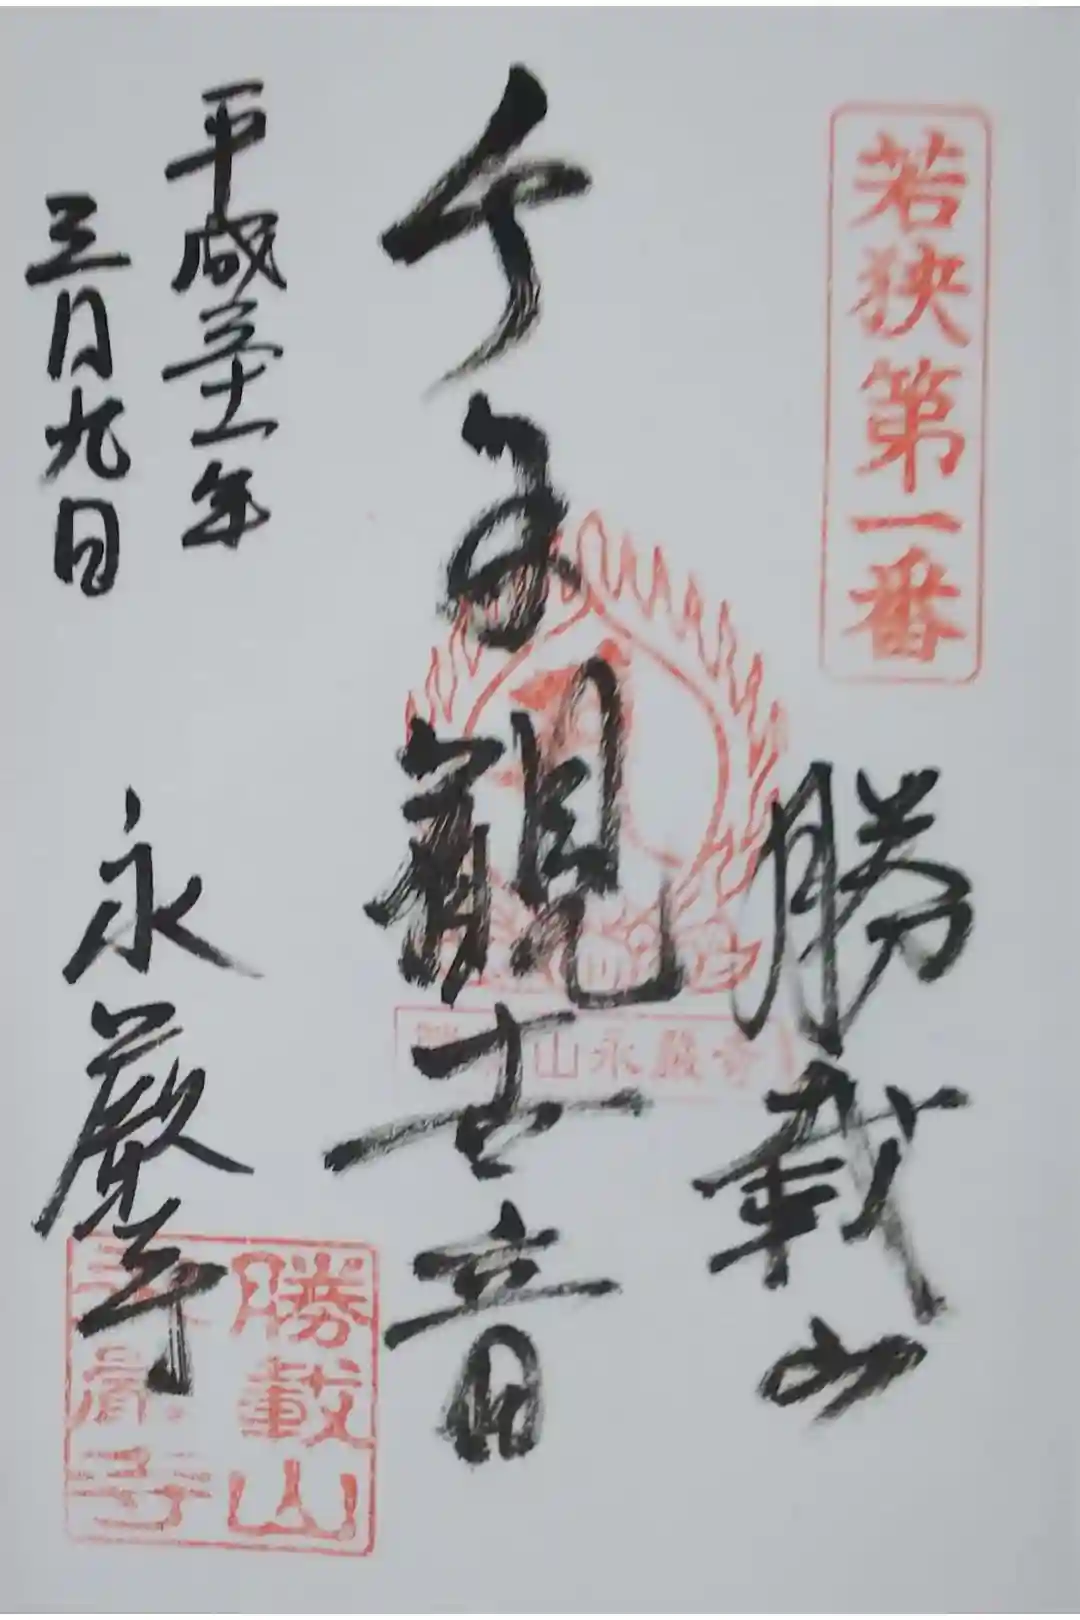 若狭第一番
勝載山
千手觀世音
山永嚴寺
平成三十一年
三月九日
永嚴寺
勝載山
永嚴寺